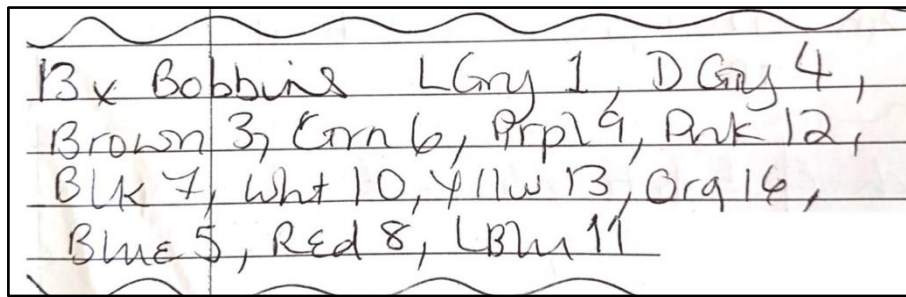 13x Bobbins LGry 1, D Gry 4,
Brown 3, Grn 6, Prpl 9, Pnk 12,
Blk 7, Wht 10, Yllw 13, Org 16,
Blue 5, Red 8, LBlu 11